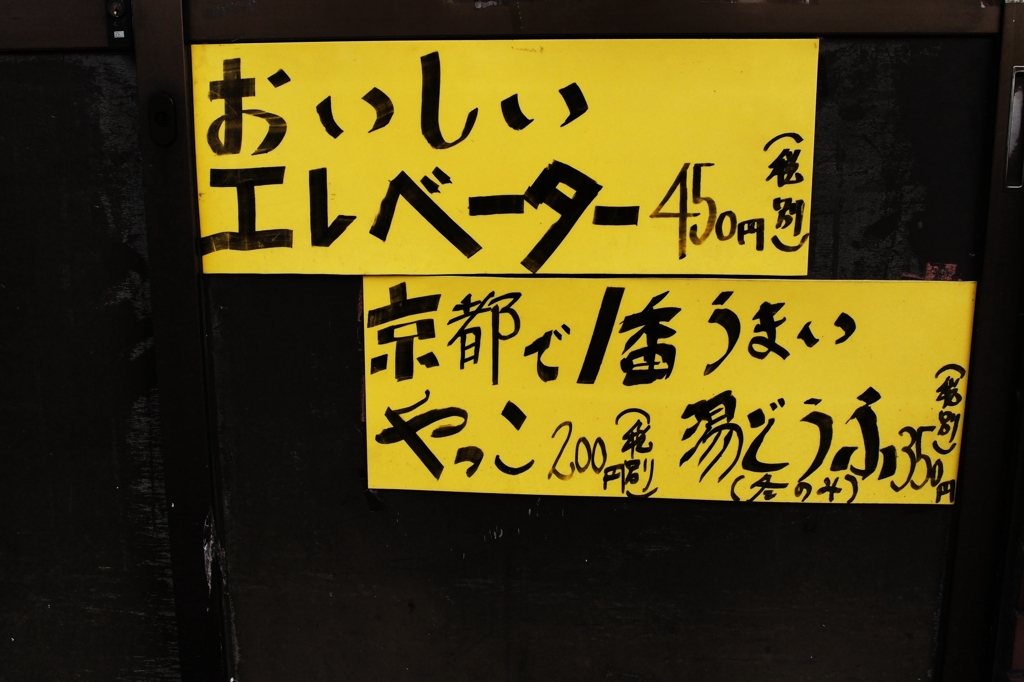 おいしい
エレベーター 450円 (税別)
京都で1番うまい
やっこ 200円 (税別) 湯どうふ 350円 (税別)
(冬のみ)